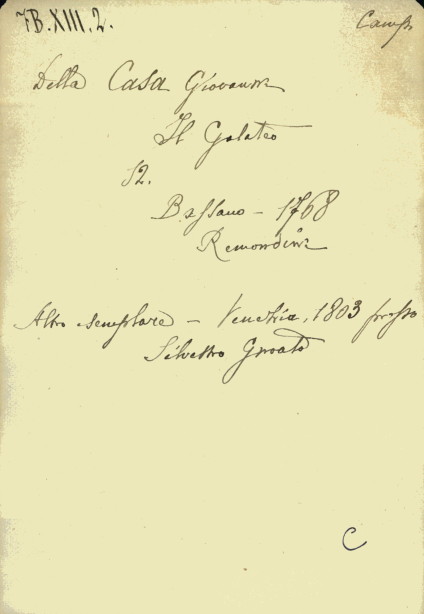 7B.XIII.2.
Camp.
Della Casa Giovanni
Il Galateo
12.
Bassano – 1768
Remondini
Altro esemplare – Venezia, 1803 presso
Silvestro Gnoato
C